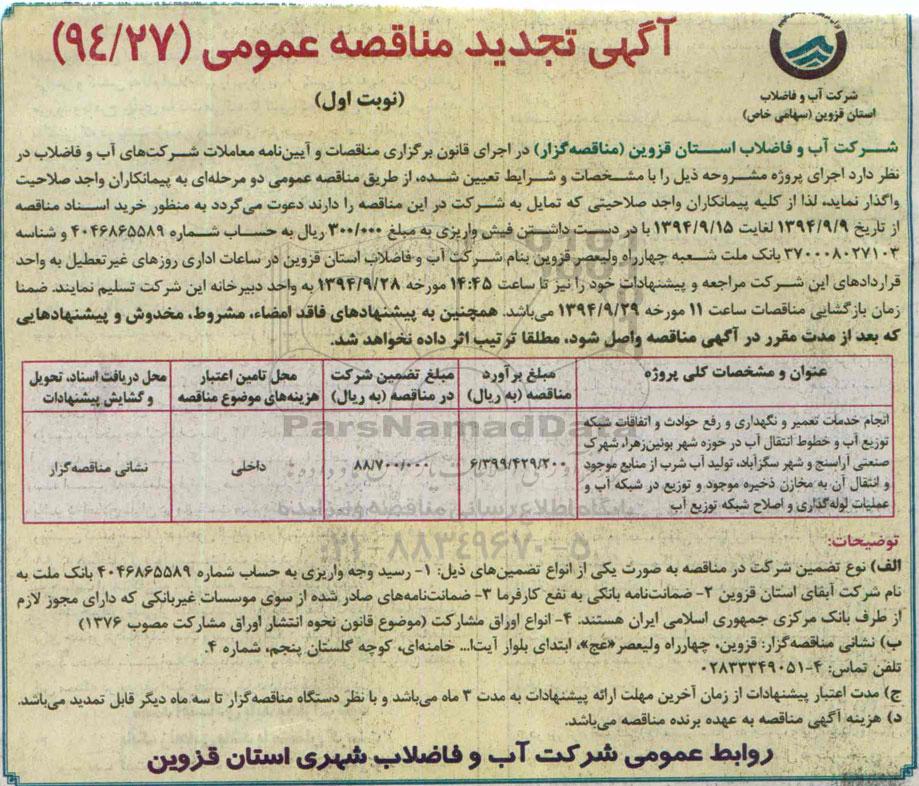 آگهی تجدید مناقصه عمومی (۹٤/۲۷)
(نوبت اول)
شرکت آب و فاضلاب
استان قزوین (سهامی خاص)
شرکت آب و فاضلاب استان قزوین (مناقصه‌گزار) در اجرای قانون برگزاری مناقصات و آیین‌نامه معاملات شرکت‌های آب و فاضلاب در
نظر دارد اجرای پروژه مشروحه ذیل را با مشخصات و شرایط تعیین شده، از طریق مناقصه عمومی دو مرحله‌ای به پیمانکاران واجد صلاحیت
واگذار نماید، لذا از کلیه پیمانکاران واجد صلاحیتی که تمایل به شرکت در این مناقصه را دارند دعوت می‌گردد به منظور خرید اسناد مناقصه
از تاریخ ۱۳۹۴/۹/۹ لغایت ۱۳۹۴/۹/۱۵ با در دست داشتن فیش واریزی به مبلغ ۳۰۰/۰۰۰ ریال به حساب شماره ۴۰۴۶۸۶۵۵۸۹ و شناسه
۳۷۰۰۰۸۰۲۷۱۰۳ بانک ملت شعبه چهارراه ولیعصر قزوین بنام شرکت آب و فاضلاب استان قزوین در ساعات اداری روزهای غیرتعطیل به واحد
قراردادهای این شرکت مراجعه و پیشنهادات خود را نیز تا ساعت ۱۴:۴۵ مورخه ۱۳۹۴/۹/۲۸ به واحد دبیرخانه این شرکت تسلیم نمایند. ضمنا
زمان بازگشایی مناقصات ساعت ۱۱ مورخه ۱۳۹۴/۹/۲۹ می‌باشد. همچنین به پیشنهادهای فاقد امضاء، مشروط، مخدوش و پیشنهادهایی
که بعد از مدت مقرر در آگهی مناقصه واصل شود، مطلقا ترتیب اثر داده نخواهد شد.
عنوان و مشخصات کلی پروژه
مبلغ برآورد
مناقصه (به ریال)
مبلغ تضمین شرکت
در مناقصه (به ریال)
محل تامین اعتبار
هزینه‌های موضوع مناقصه
محل دریافت اسناد، تحویل
و گشایش پیشنهادات
انجام خدمات تعمیر و نگهداری و رفع حوادث و اتفاقات شبکه
توزیع آب و خطوط انتقال آب در حوزه شهر بوئین‌زهرا، شهرک
صنعتی آراسنج و شهر سگزآباد، تولید آب شرب از منابع موجود
و انتقال آن به مخازن ذخیره موجود و توزیع در شبکه آب و
عملیات لوله‌گذاری و اصلاح شبکه توزیع آب
۶/۳۹۹/۴۲۹/۲۰۰
۸۸/۷۰۰/۰۰۰
داخلی
نشانی مناقصه‌گزار
ParsNamadData
پایگاه اطلاع رسانی مناقصه و مزایده
۰۲۱-۸۸۳۴۹۶۷۰-۵
توضیحات:
الف) نوع تضمین شرکت در مناقصه به صورت یکی از انواع تضمین‌های ذیل: ۱- رسید وجه واریزی به حساب شماره ۴۰۴۶۸۶۵۵۸۹ بانک ملت به
نام شرکت آبفای استان قزوین ۲- ضمانت‌نامه بانکی به نفع کارفرما ۳- ضمانت‌نامه‌های صادر شده از سوی موسسات غیربانکی که دارای مجوز لازم
از طرف بانک مرکزی جمهوری اسلامی ایران هستند. ۴- انواع اوراق مشارکت (موضوع قانون نحوه انتشار اوراق مشارکت مصوب ۱۳۷۶)
ب) نشانی مناقصه‌گزار: قزوین، چهارراه ولیعصر«عج»، ابتدای بلوار آیت‌ا... خامنه‌ای، کوچه گلستان پنجم، شماره ۴.
تلفن تماس: ۴-۰۲۸۳۳۳۴۹۰۵۱
ج) مدت اعتبار پیشنهادات از زمان آخرین مهلت ارائه پیشنهادات به مدت ۳ ماه می‌باشد و با نظر دستگاه مناقصه‌گزار تا سه ماه دیگر قابل تمدید می‌باشد.
د) هزینه آگهی مناقصه به عهده برنده مناقصه می‌باشد.
روابط عمومی شرکت آب و فاضلاب شهری استان قزوین